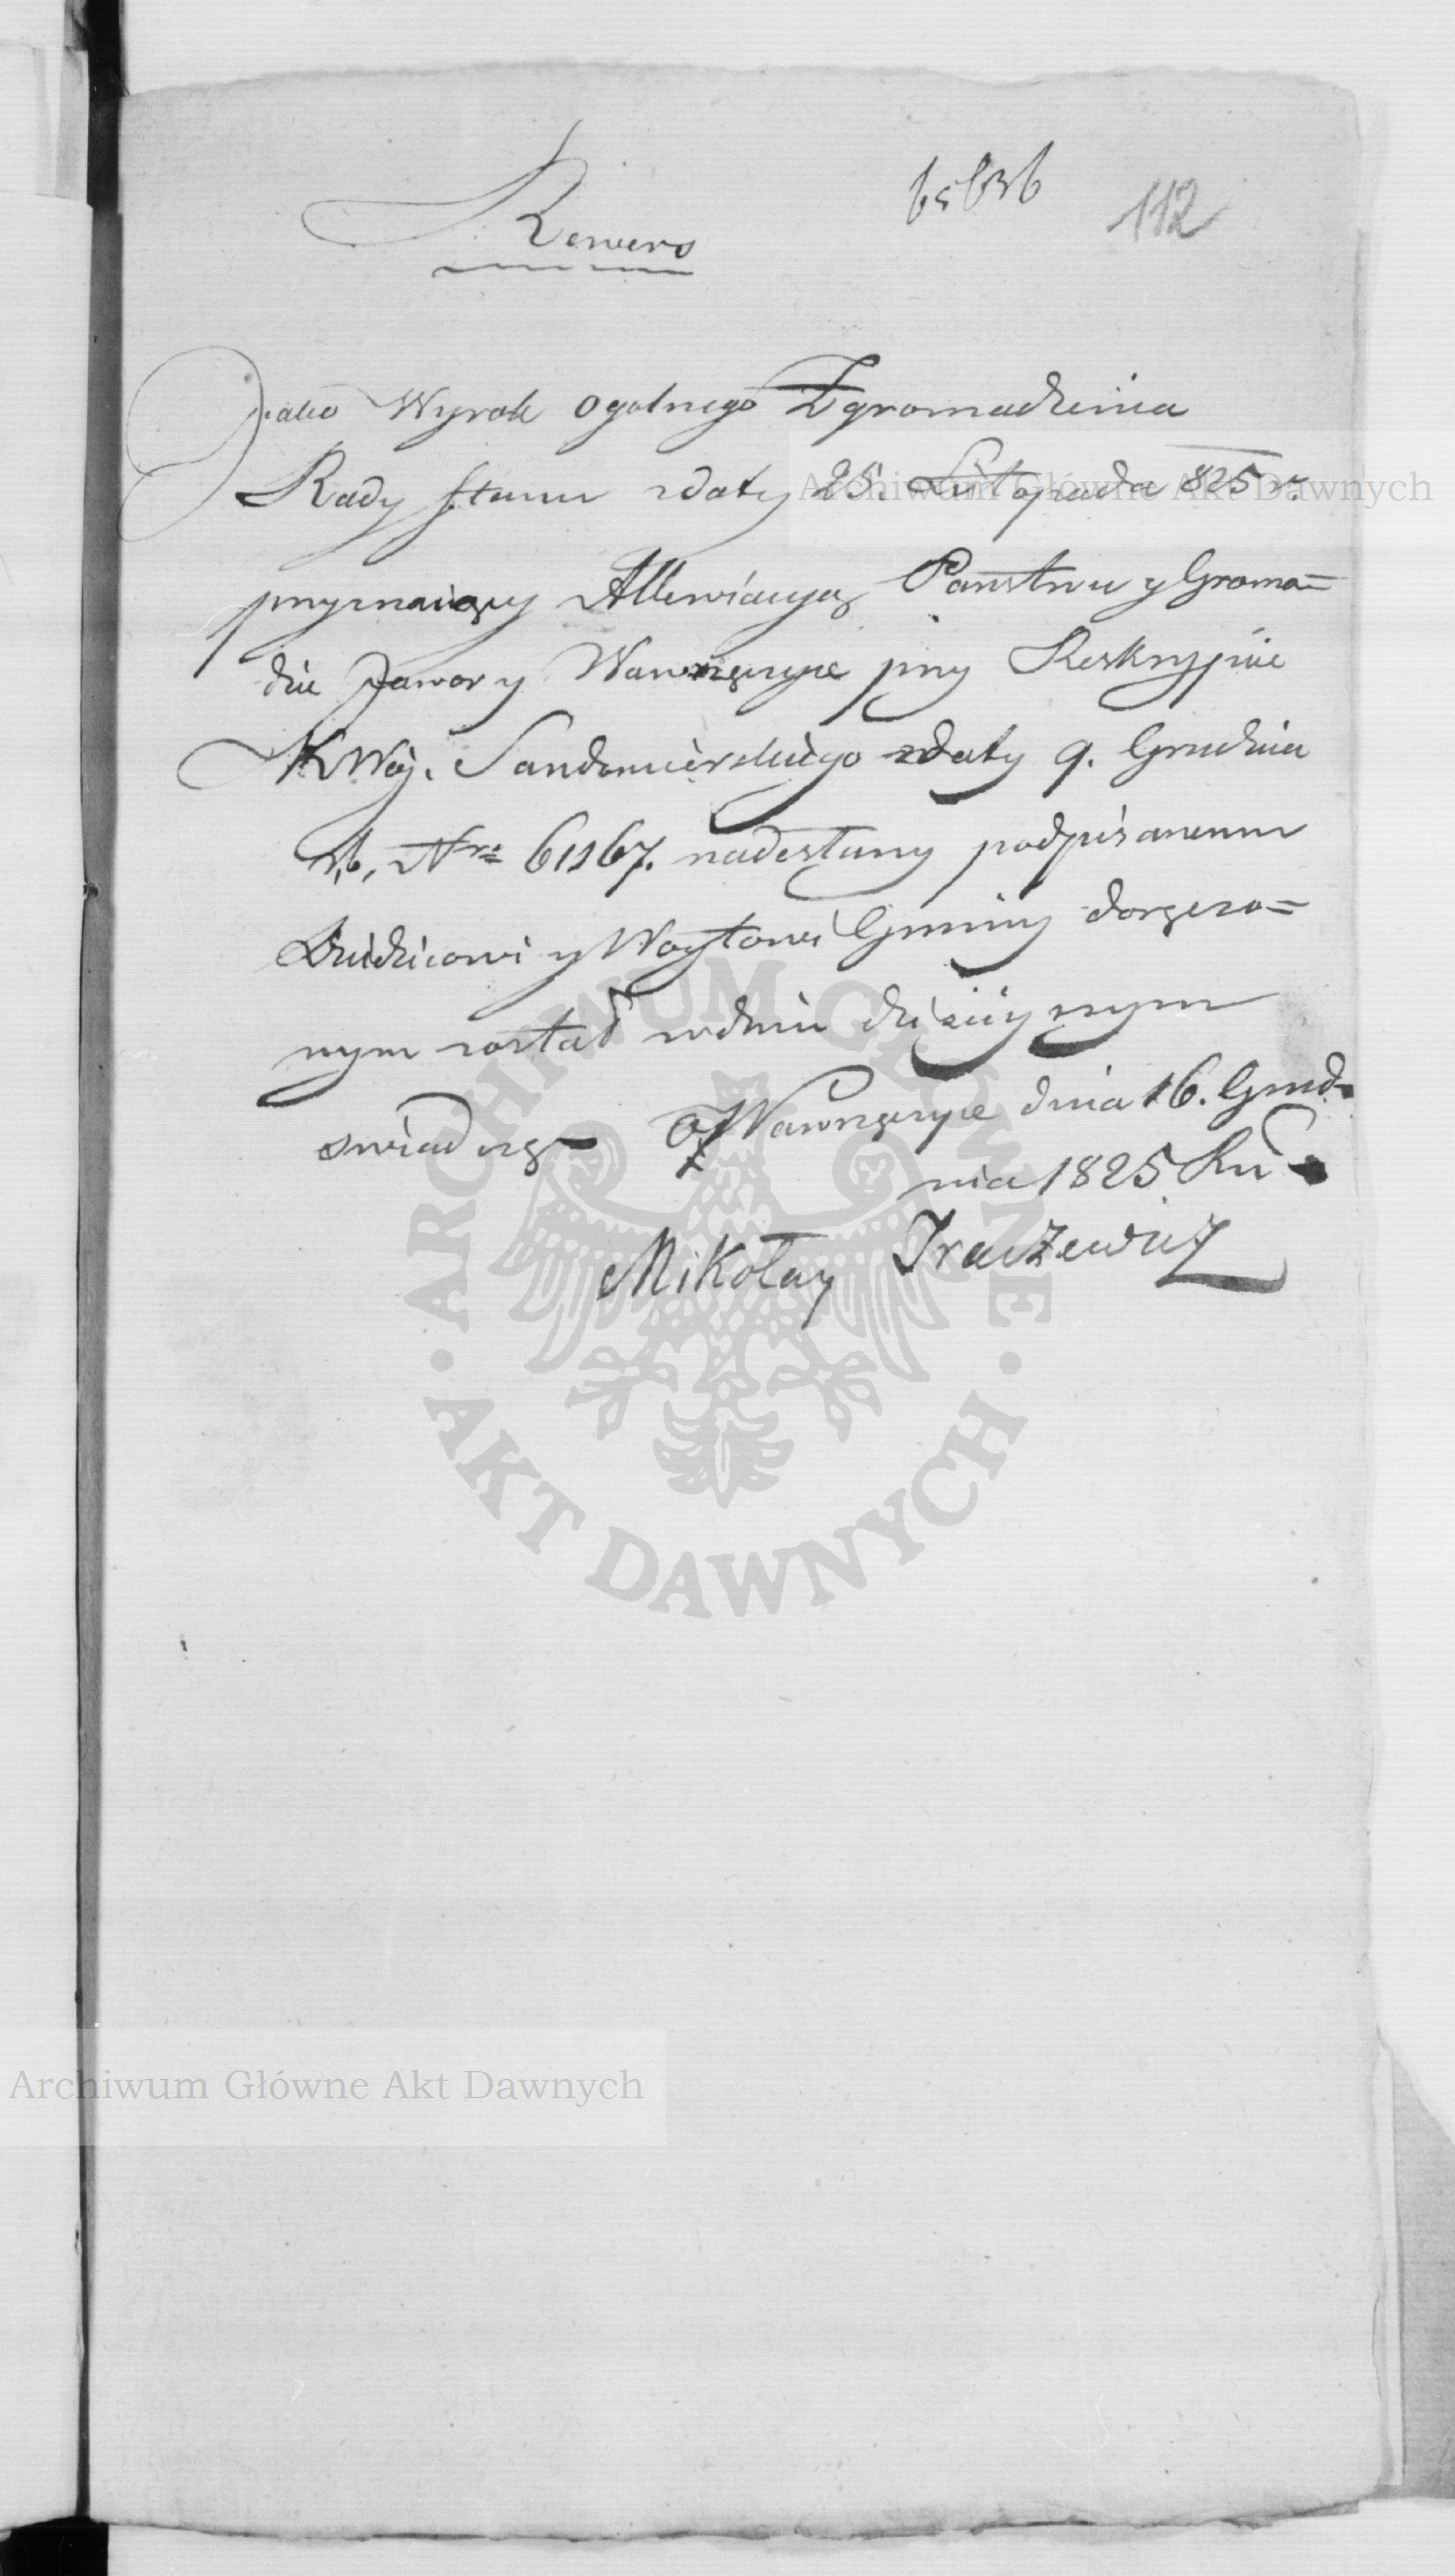 65636
112
Rewers
Jako Wyrok Ogolnego Zgromadzenia
Rady Stanu zdaty 25. Listopada 825 r.
przyznaiący Allewiacyą Państwu y Groma=
dzie Jawory Wawrzęczyce przy Reskrypcie
KWoj. Sandomierskiego zdaty 9. Grudnia
r,b, Nro 61167. nadesłany podpisanemu
Dziedzicowi y Woytowi Gminy doręczo=
nym został wdniu dzisieyszym
swiadczę w Wawrzęczyce dnia 16. Grud=
nia 1825 Ru
Mikołay
Archiwum Główne Akt Dawnych
ARCHIWUM GŁÓWNE
AKT DAWNYCH
Archiwum Główne Akt Dawnych